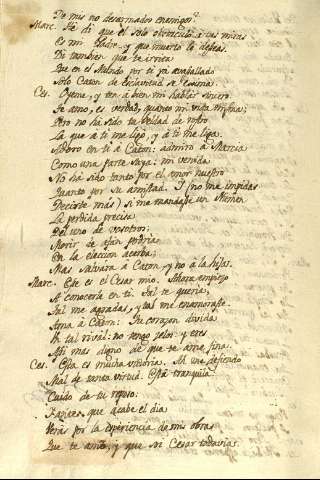 De mis no desarmados enemigos?
Marc. Sé di que el solo obstaculo á sus miras
Es mi Padre, y que muerto le deseas.
Di tambien que te irrita
Que en el Mundo por ti ya avasallado
Solo Caton de esclavitud se exima.
Ces. Oyeme, y ten á bien mi hablar sincero.
Te amo, es verdad, quanto mi vista misma;
Pero no ha sido tu beldad de
La que á ti me ligó, y á ti me liga.
Adoro en ti á Caton: admiro á Marcia
Como una parte suya: mi venida
No ha sido tanto por el amor nuestro
Quanto por su amistad. Y (no me impidas
Decirte más) si me mandase un Numen
La perdida precisa
Del uno de vosotros;
Morir de afan podria
En la eleccion acerba;
Mas salvara á Caton, y no á la hija.
Marc. Este es el Cesar mio. Ahora empiezo
A conocerte en ti. Tal te queria,
Tal me agradas, y tal me enamoraste.
Ama á Caton: Tu corazon divida
Un tal rival: no tengo zelos, y eres
Asi mas digno de que te ame fina.
Ces. Esta es mucha vitoria. Ah! me defiendo
Mal de tanta virtud. Está tranquila:
Cuido de tu reposo.
que acabe el dia
Verás por la esperiencia de mis obras
Que te amo, y que soi Cesar todavia.